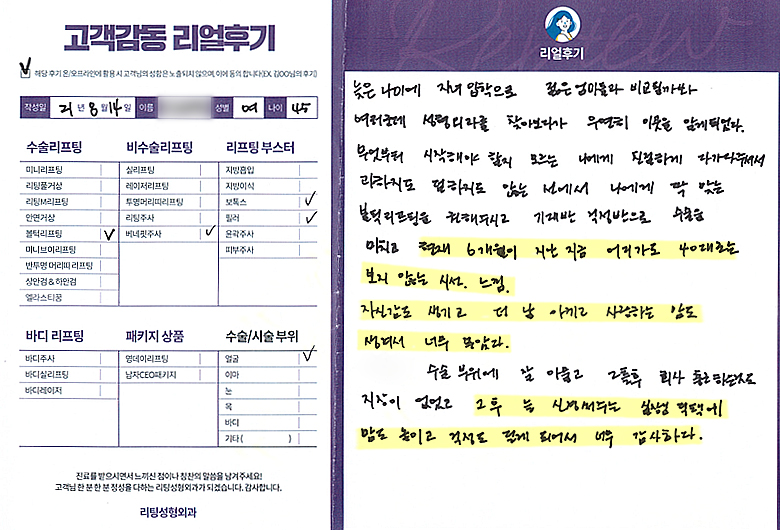 고객감동 리얼후기
해당 후기 온/오프라인에 활용 시 고객님의 성함은 노출되지 않으며, 이에 동의 합니다(EX. 김OO님의 후기)
작성일 21년 8월 14일 이름 성별 여 나이 45
수술리프팅
미니리프팅
리팅풀거상
리팅M리프팅
안면거상
볼턱리프팅
미니브이리프팅
반투명 머리띠 리프팅
상안검 & 하안검
엘라스티꿈
비수술리프팅
실리프팅
레이저리프팅
투명머리띠리프팅
리팅주사
베네핏주사
리프팅 부스터
지방흡입
지방이식
보톡스
필러
윤곽주사
피부주사
바디 리프팅
바디주사
바디실리프팅
바디레이저
패키지 상품
영데이리프팅
남자CEO패키지
수술/시술 부위
얼굴
이마
눈
목
바디
기타 ( )
진료를 받으시면서 느끼신 점이나 칭찬의 말씀을 남겨주세요!
고객님 한 분 한 분 정성을 다하는 리팅성형외과가 되겠습니다. 감사합니다.
리팅성형외과
Review
리얼후기
늦은 나이에 자녀 입학으로 젊은 엄마들과 비교될까봐
여러군데 성형외과를 찾아보다가 우연히 이곳을 알게되었다.
무엇부터 시작해야 할지 모르는 나에게 친절하게 다가와주셔서
과하지도 덜하지도 않는 선에서 나에게 딱 맞는
볼턱리프팅을 권해주시고 기대반 걱정반으로 수술을
마치고 현재 6개월이 지난 지금 어디가도 40대로는
보지 않는 시선. 느낌.
자신감도 생기고 더 날 아끼고 사랑하는 맘도
생겨서 너무 좋았다.
수술 부위에 잘 아물고 그 회사
지장이 없었고 그 후 늘 신경써주는 덕택에
맘도 놓이고 걱정도 덜게 되어서 너무 감사하다.